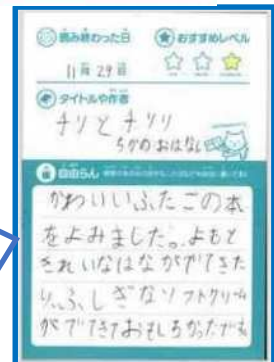 読み終わった日
おすすめレベル
11月29日
タイトルや作者
チリとチリリ
ちかのおはなし
自由らん
かわいいふたごの本
をよみました。よもと
きれいなはながでてきた
り、ふしぎなソフトクリーム
がでてきておもしろかったです